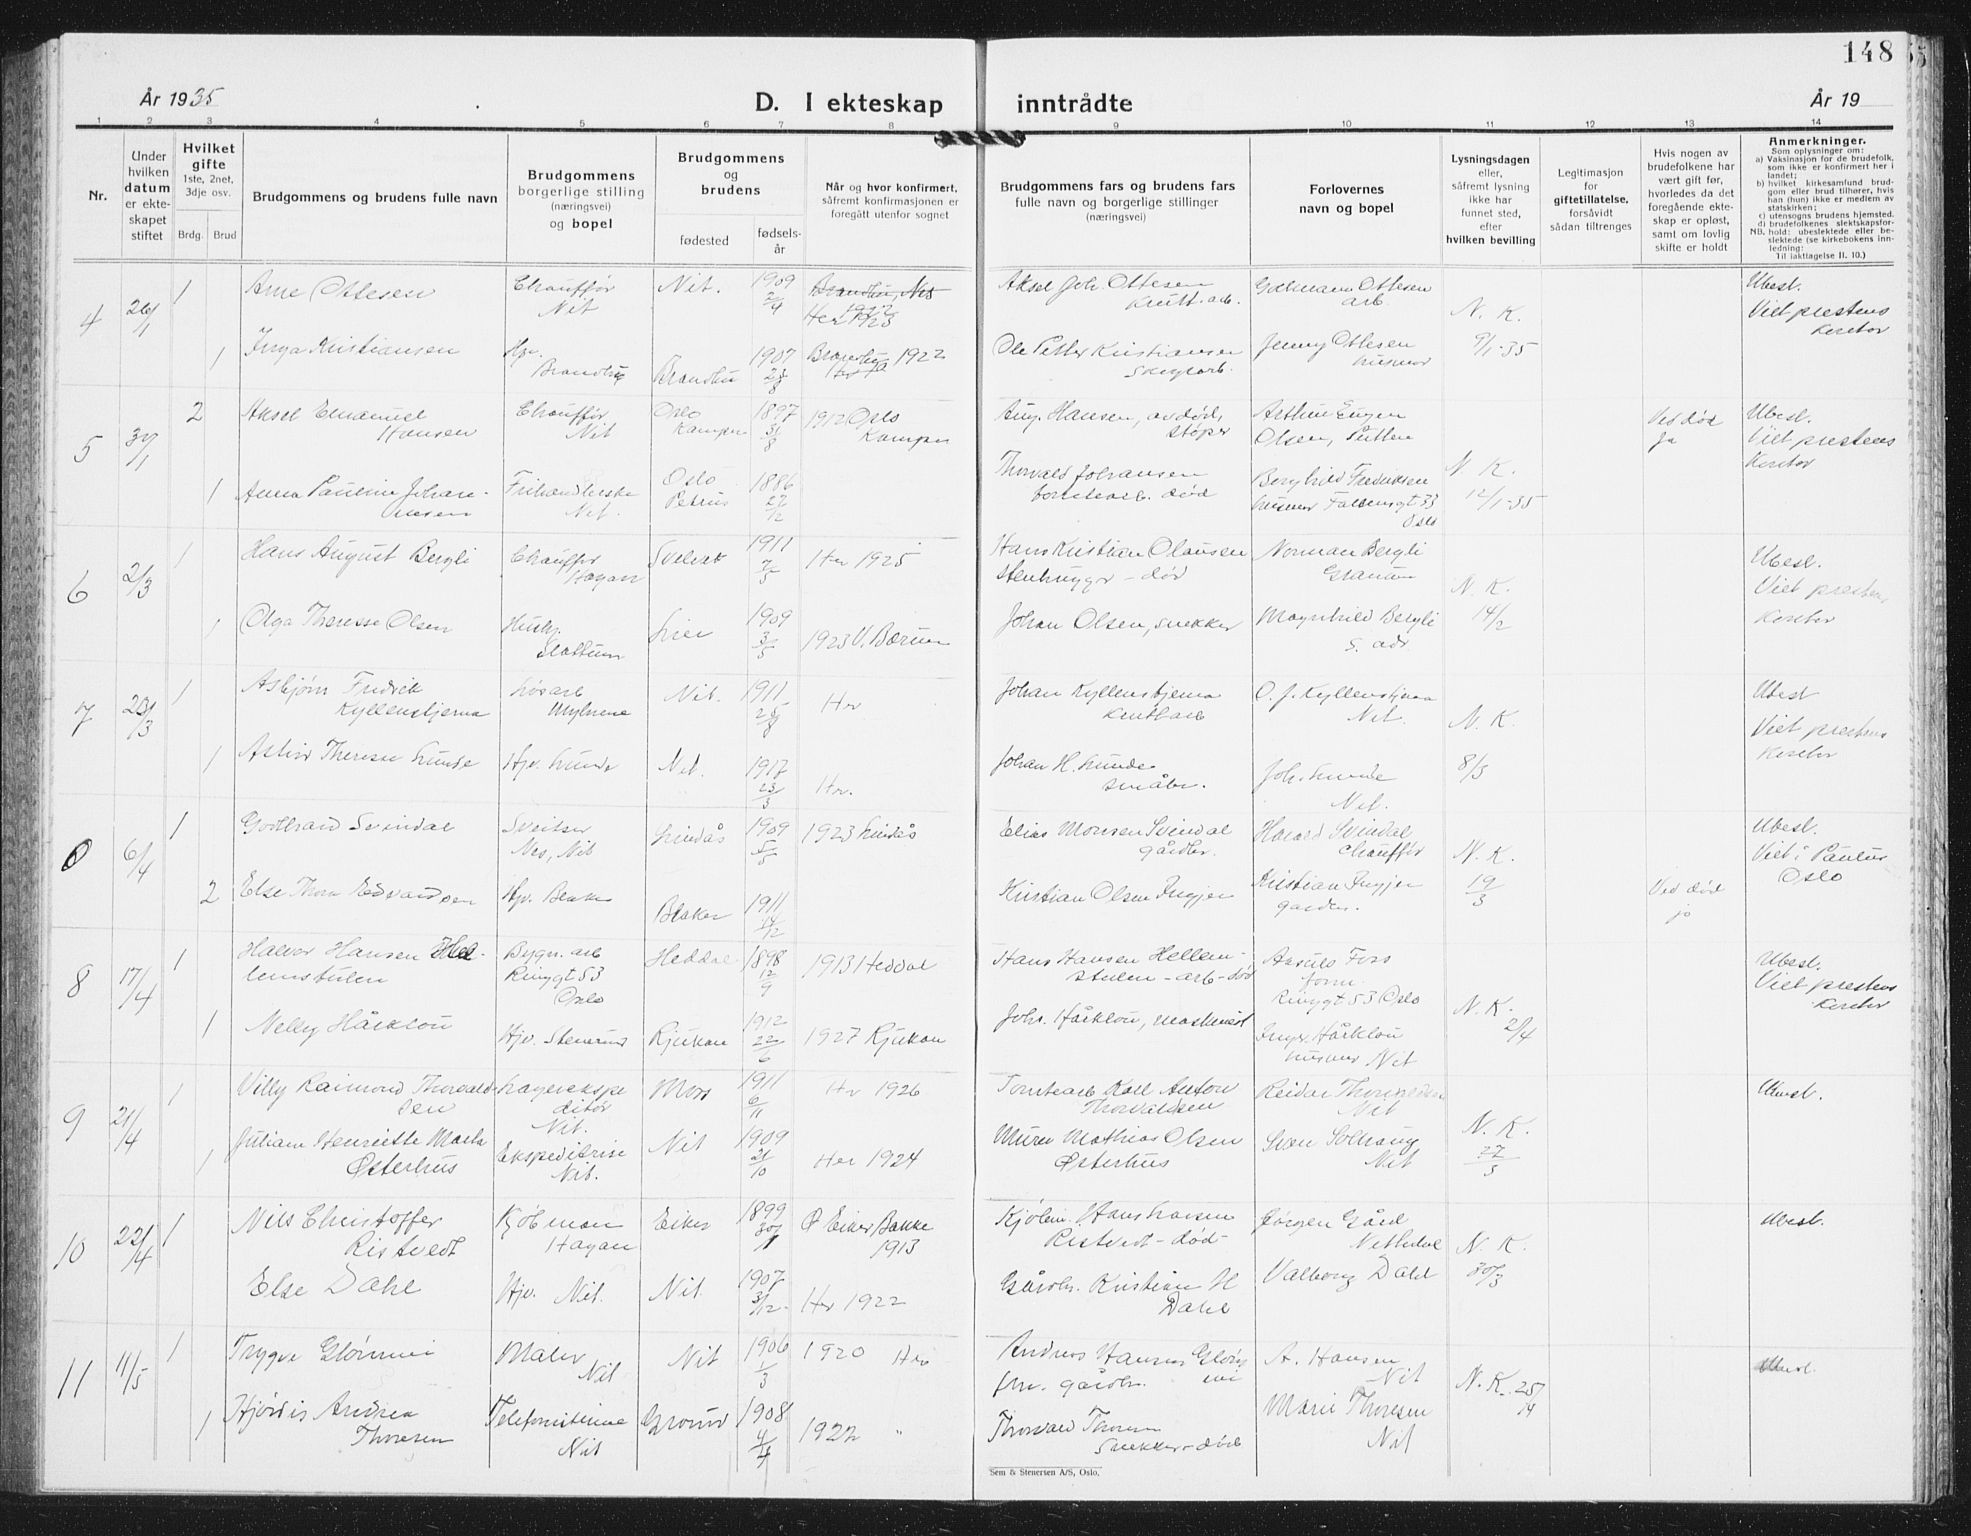 148
År 1935
D. I ekteskap inntrådte
År 19
1 2 3 4 5 6 7 8 9 10 11 12 13 14
Nr.
Under
hvilken
datum
er ekte-
skapet
stiftet
Hvilket
gifte
1ste, 2net,
3dje osv.
Brdg. Brud
Brudgommens og brudens fulle navn
Brudgommens
borgerlige stilling
(næringsvei)
og bopel
Brudgommens
og
brudens
fødested
fødsels-
år
Når og hvor konfirmert,
såfremt konfirmasjonen er
foregått utenfor sognet
Brudgommens fars og brudens fars
fulle navn og borgerlige stillinger
(næringsvei)
Forlovernes
navn og bopel
Lysningsdagen
eller,
såfremt lysning
ikke har
funnet sted,
efter
hvilken bevilling
Legitimasjon
for
giftetillatelse,
forsåvidt
sådan tiltrenges
Hvis nogen av
brudefolkene har
vært gift før,
hvorledes da det
foregående ekte-
skap er opløst,
samt om lovlig
skifte er holdt
Anmerkninger.
Som oplysninger om:
a) Vaksinasjon for de brudefolk,
som ikke er konfirmert her i
landet;
b) hvilket kirkesamfund brud-
gom eller brud tilhører, hvis
han (hun) ikke er medlem av
statskirken;
c) utensogns brudens hjemsted.
d) brudefolkenes slektskapsfor-
NB. hold: ubeslektede eller be-
slektede (se kirkebokens inn-
ledning:
Til iakttagelse II. 10.)
4 26/1 1 Arne Ottesen Chauffør Nit Nit. 1909 2/4 Brandbu, Nes Her 1923
Aksel Joh. Ottesen Ottesen arb. N. K. 9/1-35 Ubesl. Viet prestens kontor
1 Inga Kristiansen Brandbu Brandbu 1907 Brandbu 1922
Ole Petter Kristiansen Jenny Ottesen husmor
5 2 Aksel Emanuel Hansen Chauffør Nit Oslo Kampen 1897 31/8 1912 Oslo Kampen
Aug. Hansen, av død, støper Olsen, N. K. 12/1-35 Ved død ja Ubesl. Viet prestens kontor
1 Anna Pauline Johannesen Nit. Oslo Petrus 1886 27/12
Thorvald Johansen død Borghild Fredriksen husmor Oslo
6 2/3 1 Hans August Bergli Chauffør Hagan Svelvik 1911 7/5 Her 1925
Hans Kristian Olausen stenhugger - død Norman Bergli N. K. 14/2 Ubesl. Viet prestens kontor
1 Olga Therese Olsen Hush. Slattum Lier 1909 3/5 1923 V. Bærum
Johan Olsen, snekker Magnhild Bergli s. adr
7 1 Asbjørn Fredrik Kyllenstjerna Løsarb Nit. 1911 25/8 Her
Johan Kyllenstjerna O. J. Kyllenstjerna Nit. N. K. 8/3 Ubesl Viet prestens kontor
1 Astrid Therese Lunde Hjv. Lunde Nit. 1917 23/3 Her.
Johan H. Lunde småbr. Joh. Lunde Nit.
0 6/4 1 Svindal Sveitser Nes, Nit Lindås 1909 5/5 1923 Lindås
Elias Monsen Svindal gårdbr. Harald Svindal chauffør N. K. 19/3 Ved død jo Ubesl. Viet i Paulus Oslo
2 Else Thora Edvardsen Hjv. Blaker Blaker 1911 14/12
Kristian Olsen Kristian
8 17/4 1 Halvor Hansen Hellemstulen Bygn. arb Ringgt 53 Oslo Heddal 1898 12/9 1913 Heddal
Hans Hansen Hellemstulen - arb - død Ringgt 53 Oslo N. K. 2/4 Ubesl. Viet prestens kontor
1 Nelly Håkklou Hjv. Stenerud Rjukan 1912 22/6 1927 Rjukan
Joh. Håkklou, maskinist Håkklou husmor Nit
9 21/4 1 Villy Raimond Thorvaldsen Lagerekspeditør Nit. Moss 1911 6/11 Her 1926
Tomtearb Karl Anton Thorvaldsen Reidar Thorvaldsen Nit N. K. 27/3 Ubesl.
1 Juliane Henriette Marta Østerhus Ekspeditrise Nit. Nit 1909 21/10 Her 1924
Murer Mathias Olsen Østerhus Solhaug Nit
10 22/4 1 Nils Christoffer Ristvedt Kjøbman Hagan Eiker 1899 Ø Eiker Bakke 1913
Kjøbm. Hans Larsen Ristvedt - død - Jørgen Gård Nittedal N. K. 30/3 Ubesl.
Else Dahl Hjv. Nit. Nit 1907 3/12 Her 1922
Gårdbr. Kristian H Dahl Valborg Dahl
11 11/5 1 Trygve Glømmi Maler Nit Nit 1906 1/3 1920 Her
Andreas Hansen gårdbr. A. Hansen Nit N. K. 25/4 Ubesl.
1 Hjørdis Andrea Thoresen Telefonistinne Nit Grorud 1908 1922 "
Thorvald Thoresen Snekker - død Marie Thoresen Nit
Sem & Stenersen A/S, Oslo.